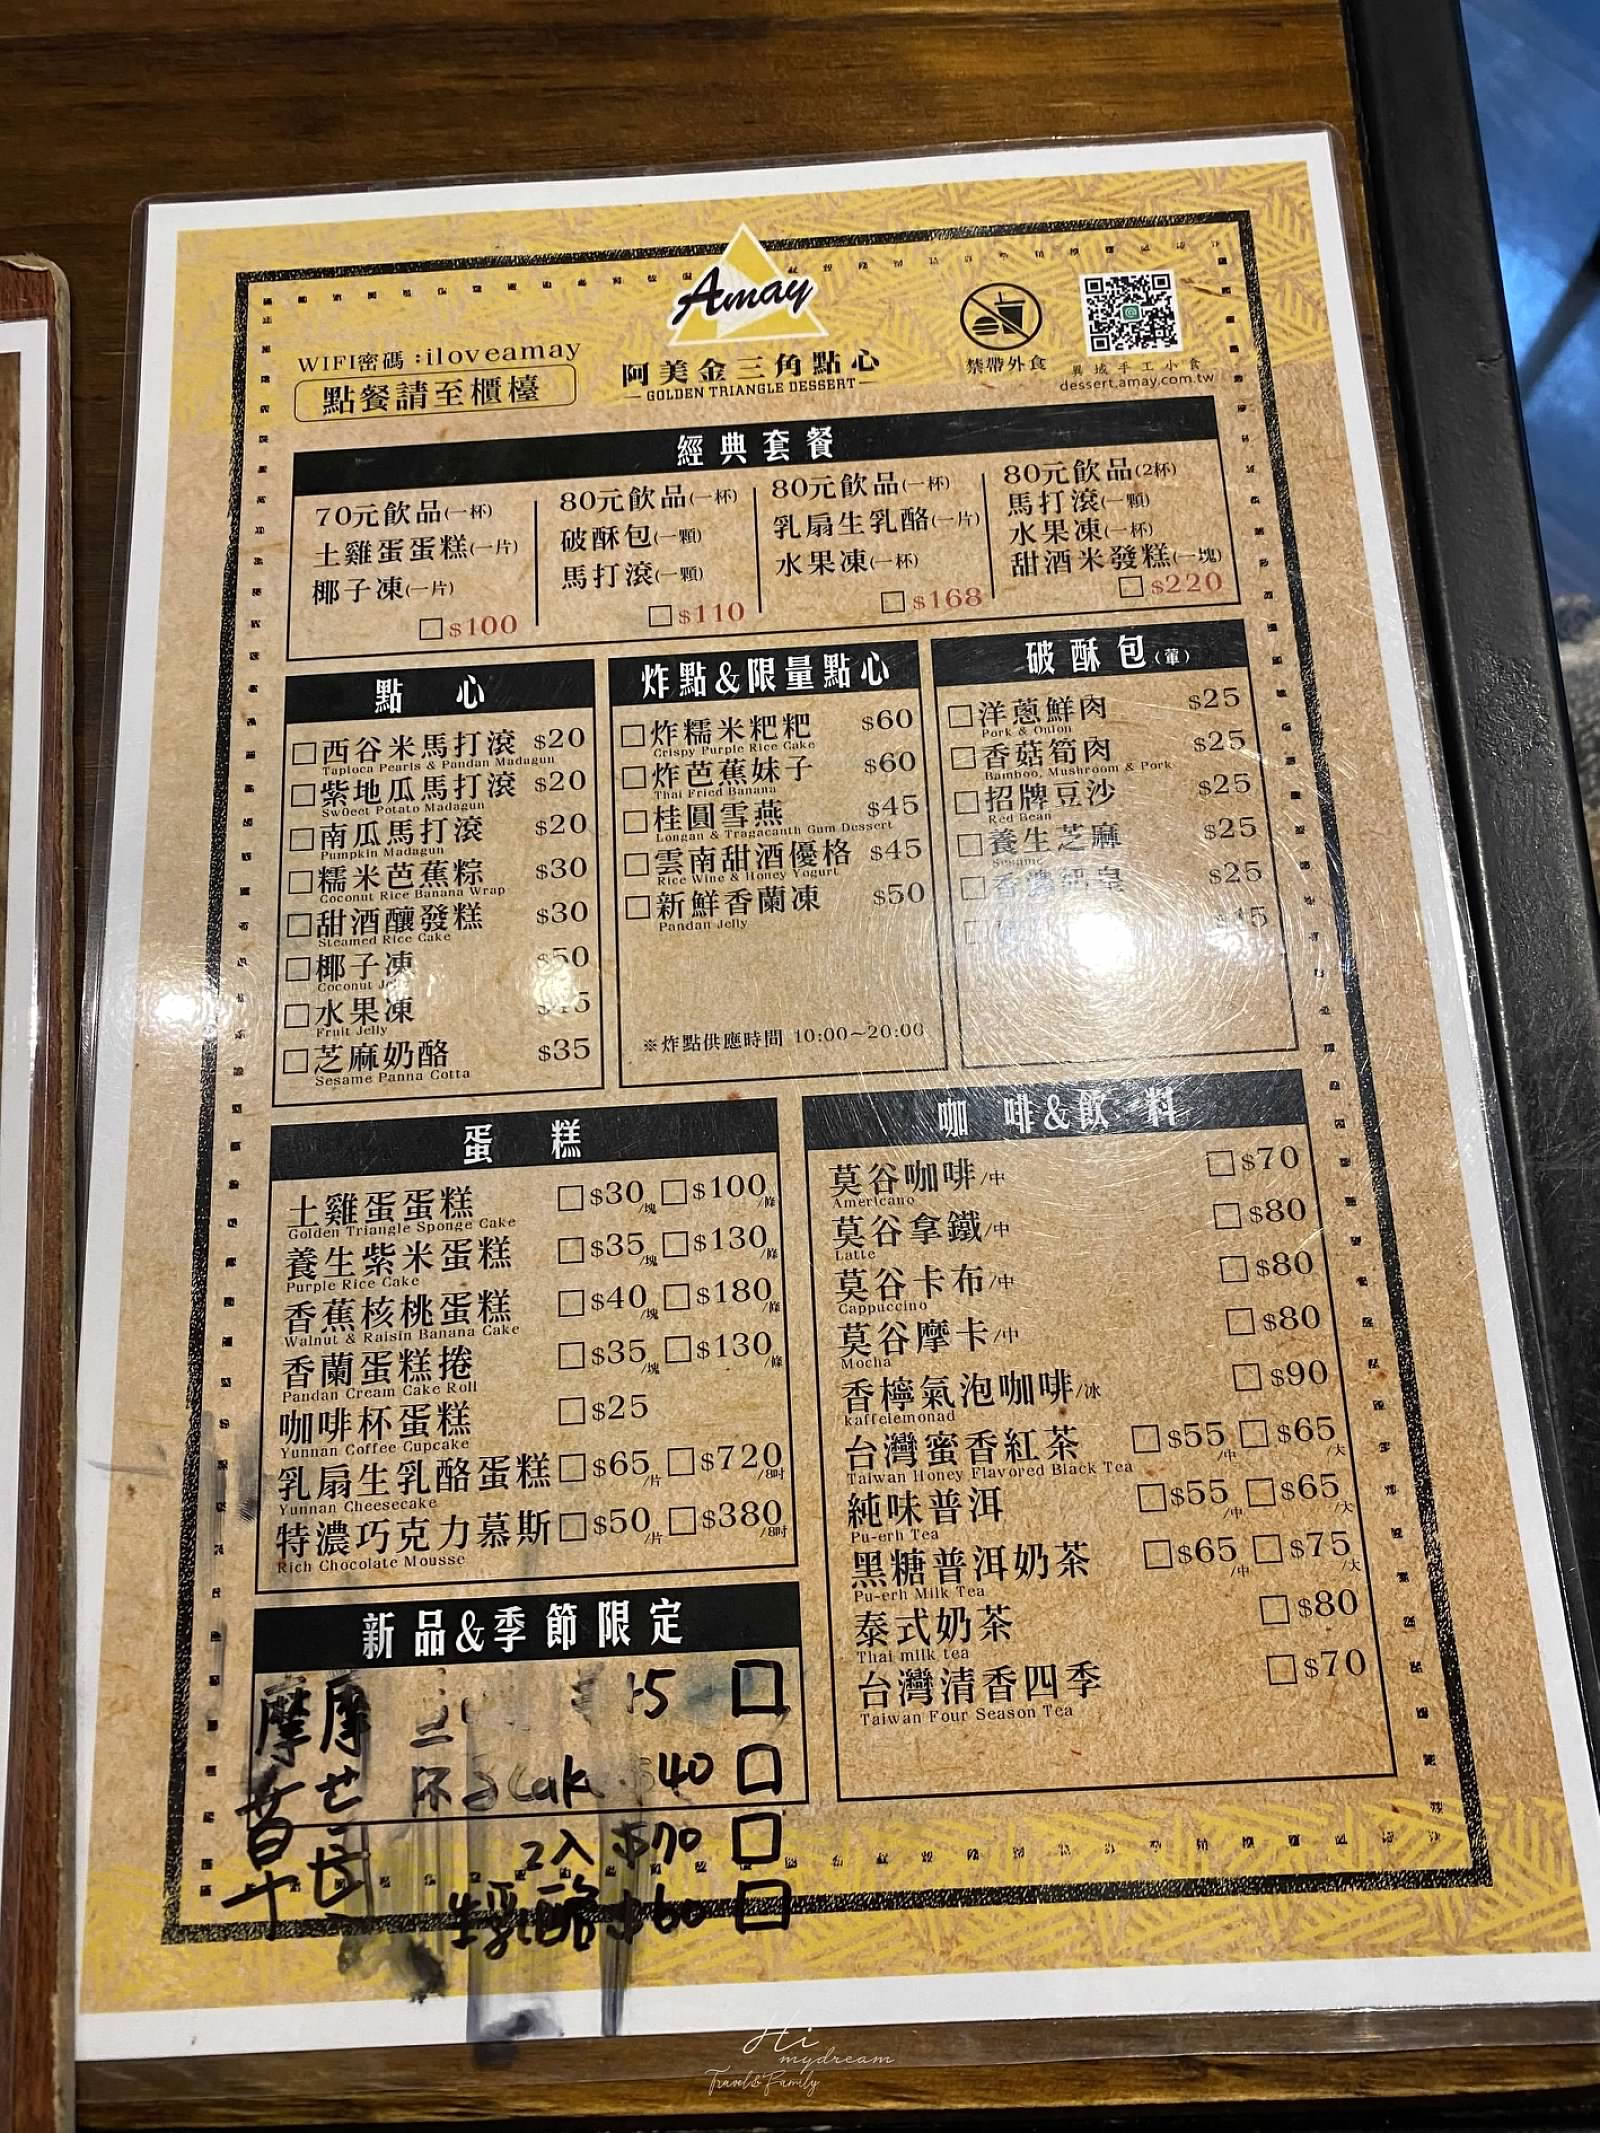 Amay
阿美金三角點心
GOLDEN TRIANGLE DESSERT
WIFI密碼:iloveamay
點餐請至櫃檯
禁帶外食
異域手工小食
dessert.amay.com.tw
經典套餐
70元飲品(一杯)
土雞蛋蛋糕(一片)
椰子凍(一片)
$100
80元飲品(一杯)
破酥包(一顆)
馬打滾(一顆)
$110
80元飲品(一杯)
乳扇生乳酪(一片)
水果凍(一杯)
$168
80元飲品(2杯)
馬打滾(一顆)
水果凍(一杯)
甜酒米發糕(一塊)
$220
點 心
西谷米馬打滾 $20
Tapioca Pearls & Pandan Madagun
紫地瓜馬打滾 $20
Sw0eet Potato Madagun
南瓜馬打滾 $20
Pumpkin Madagun
糯米芭蕉粽 $30
Coconut Rice Banana Wrap
甜酒釀發糕 $30
Steamed Rice Cake
椰子凍 $50
Coconut
水果凍
Fruit Jelly
芝麻奶酪 $35
Sesame Panna Cotta
炸點&限量點心
炸糯米粑粑 $60
Crispy Purple Rice Cake
炸芭蕉妹子 $60
Thai Fried Banana
桂圓雪燕 $45
Longan & Tragacanth Gum Dessert
雲南甜酒優格 $45
Rice Wine & Honey Yogurt
新鮮香蘭凍 $50
Pandan Jelly
※炸點供應時間 10:00~20:00
破酥包(葷)
洋蔥鮮肉 $25
Pork & Onion
香菇筍肉 $25
Bamboo, Mushroom & Pork
招牌豆沙 $25
Red Bean
養生芝麻 $25
Sesame
香濃 $25
蛋 糕
土雞蛋蛋糕 $30/塊 $100/條
Golden Triangle Sponge Cake
養生紫米蛋糕 $35/塊 $130/條
Purple Rice Cake
香蕉核桃蛋糕 $40/塊 $180/條
Walnut & Raisin Banana Cake
香蘭蛋糕捲 $35/塊 $130/條
Pandan Cream Cake Roll
咖啡杯蛋糕 $25
Yunnan Coffee Cupcake
乳扇生乳酪蛋糕 $65/片 $720/8吋
Yunnan Cheesecake
特濃巧克力慕斯 $50/片 $380/8吋
Rich Chocolate Mousse
咖 啡&飲 料
莫谷咖啡/中 $70
Americano
莫谷拿鐵/中 $80
Latte
莫谷卡布/中 $80
Cappuccino
莫谷摩卡/中 $80
Mocha
香檸氣泡咖啡/冰 $90
kaffelemonad
台灣蜜香紅茶 $55/中 $65/大
Taiwan Honey Flavored Black Tea
純味普洱 $55/中 $65/大
Pu-erh Tea
黑糖普洱奶茶 $65/中 $75/大
Pu-erh Milk Tea
泰式奶茶 $80
Thai milk tea
台灣清香四季 $70
Taiwan Four Season Tea
新品&季節限定
摩摩
$40
2入 $70
生乳酪 $60
Hi
mydream
Travel&Family